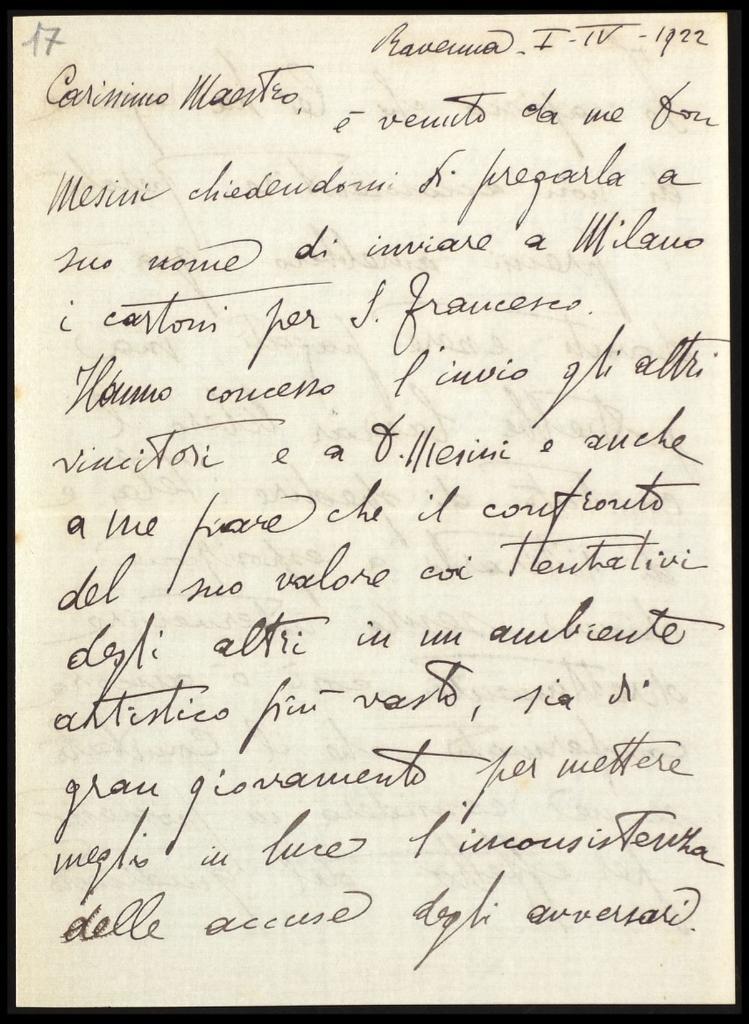 17
Ravenna - I - IV - 1922
Carissimo Maestro,
è venuto da me Don
Mesini chiedendomi di pregarla a
suo nome di inviare a Milano
i cartoni per S. Francesco.
Hanno concesso l'invio gli altri
vincitori e a D. Mesini e anche
a me pare che il confronto
del suo valore coi tentativi
degli altri in un ambiente
artistico più vasto, sia di
gran giovamento per mettere
meglio in luce l'inconsistenza
delle accuse degli avversari.